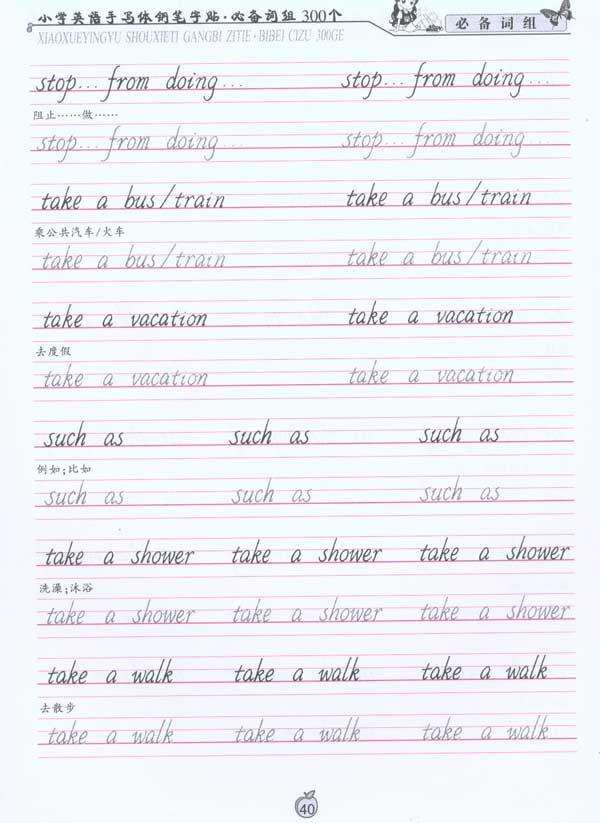 小学英语手写体钢笔字贴·必备词组300个
必备词组
XIAOXUEYINGYU SHOUXIETI GANGBI ZITIE·BIBEI CIZU 300GE
stop... from doing... stop... from doing...
阻止……做……
stop... from doing... stop... from doing...
take a bus/train take a bus/train
乘公共汽车/火车
take a bus/train take a bus/train
take a vacation take a vacation
去度假
take a vacation take a vacation
such as such as such as
例如;比如
such as such as such as
take a shower take a shower take a shower
洗澡;沐浴
take a shower take a shower take a shower
take a walk take a walk take a walk
去散步
take a walk take a walk take a walk
40